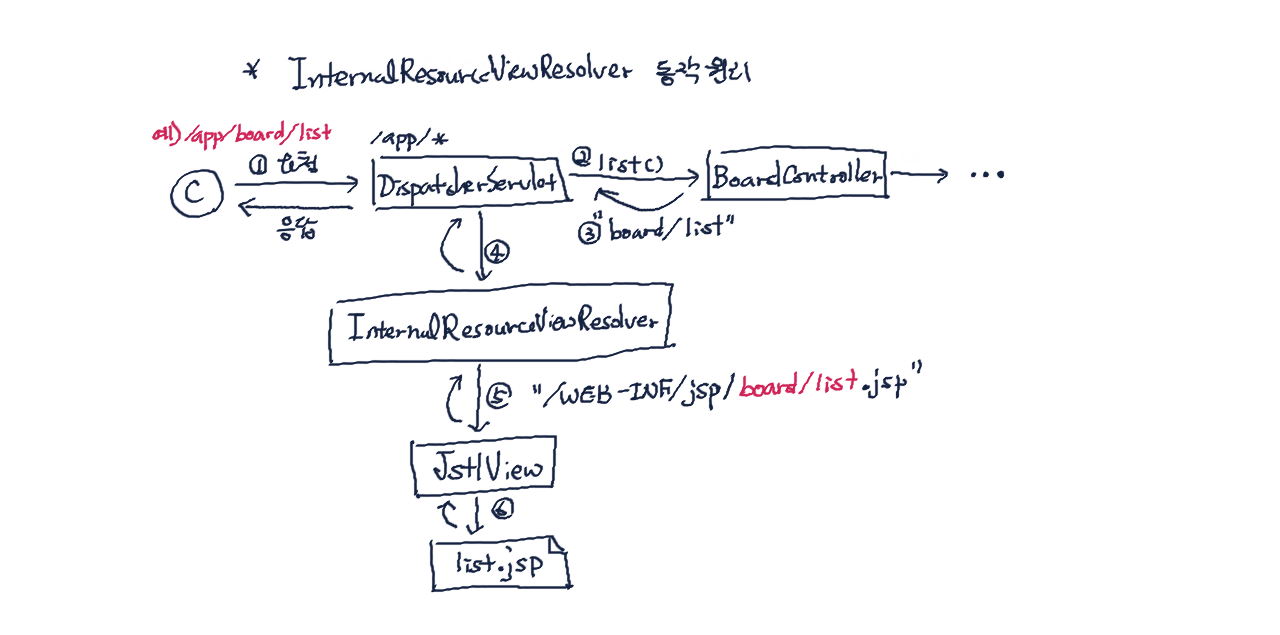 * InternalResourceViewResolver 동작원리
예) /app/board/list
/app/*
① 요청
② list()
C
DispatcherServlet
BoardController
...
응답
③ "board/list"
④
InternalResourceViewResolver
⑤ "/WEB-INF/jsp/board/list.jsp"
JstlView
⑥
list.jsp